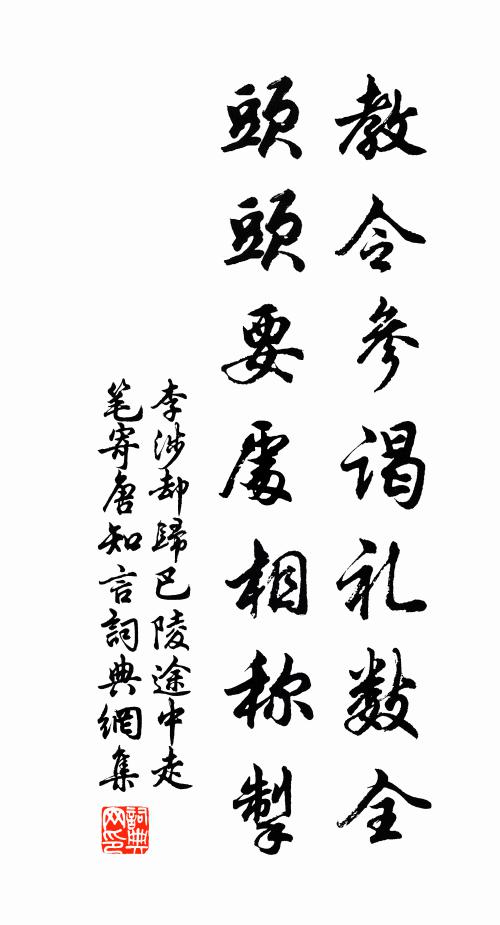 教令參謁礼数全
頭頭要處相称掣
李涉却歸巴陵途中走
笔寄唐知言詞典網集
詞典网印